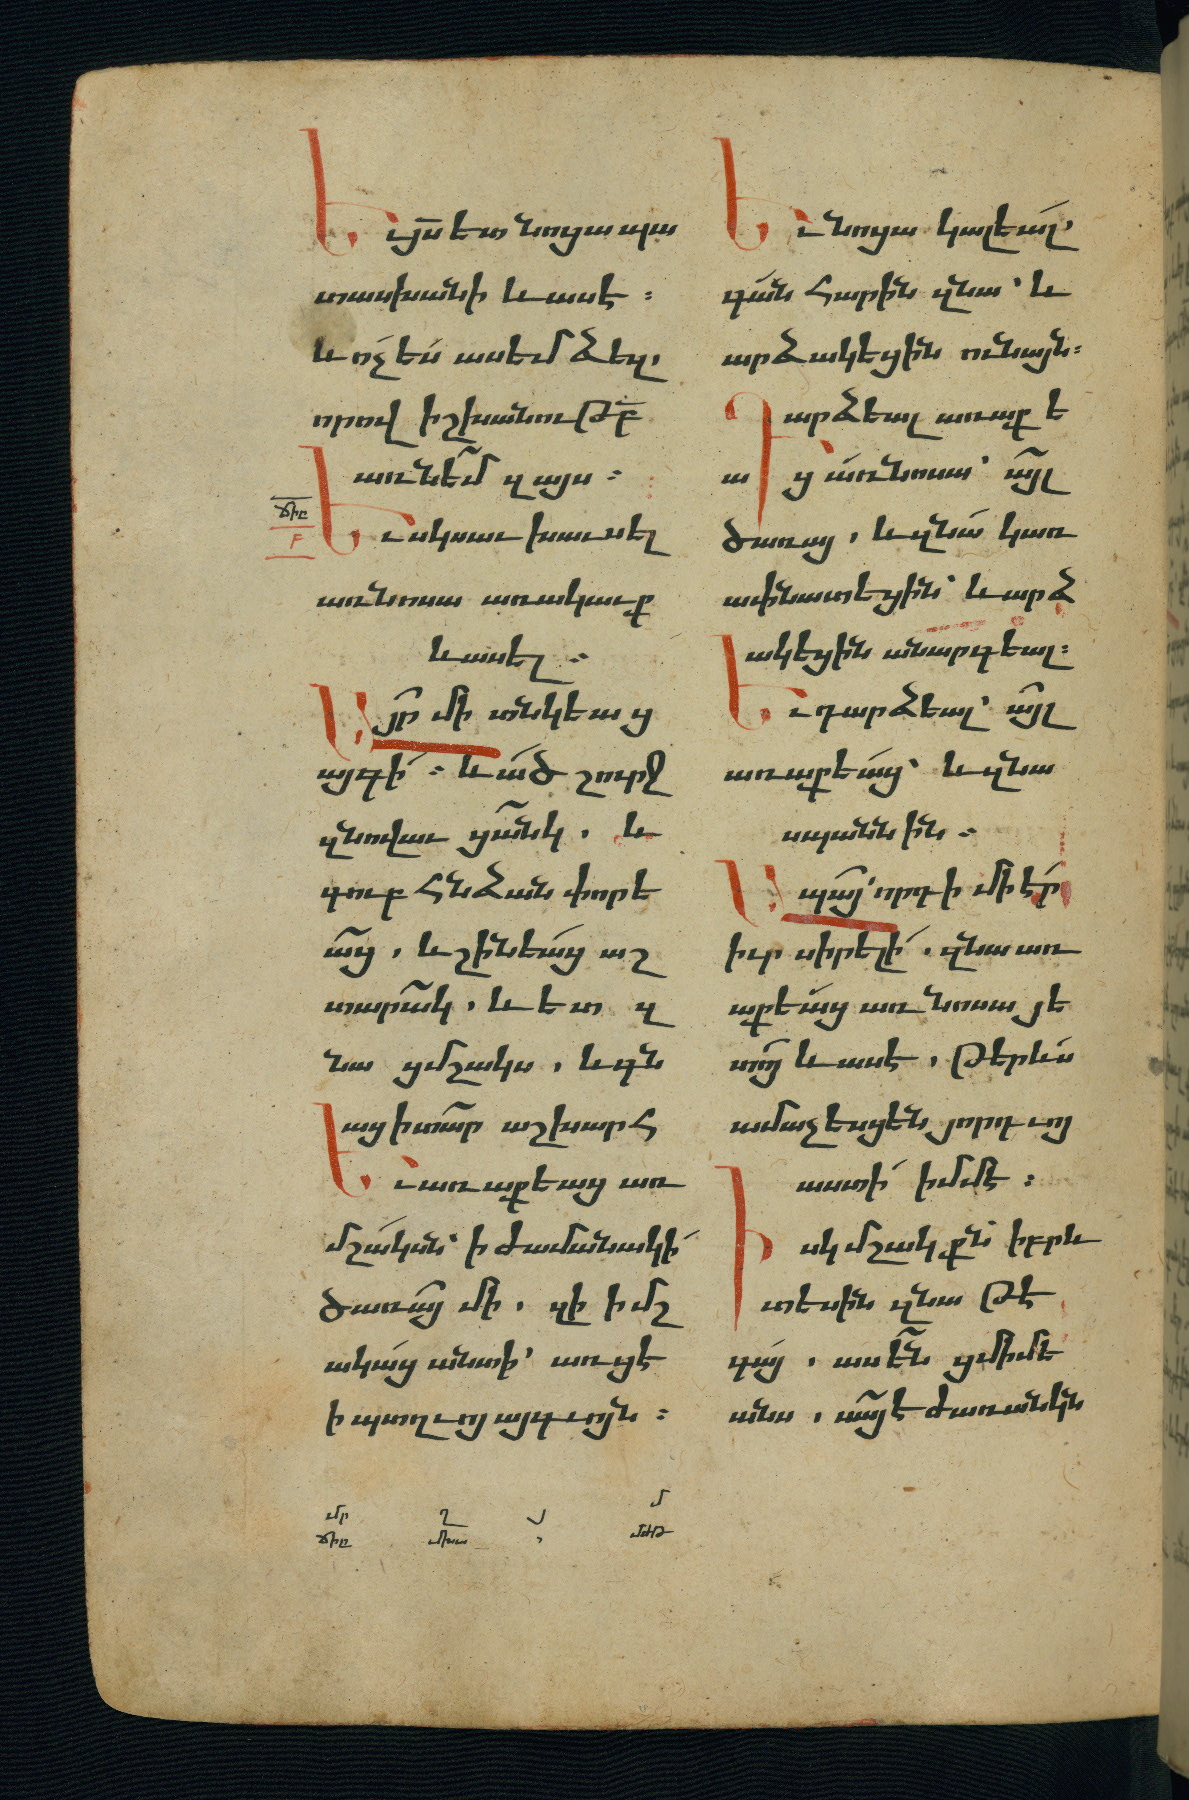 Եւ յս̅ ետ նոցա պա
տասխանի և ասէ :
և ոչ ես ասեմ ձեզ,
որով իշխանութբ̅
առնեմ զայս :
ճիը
Եւ սկսաւ խաւսել
առ նոսա առակաւք
և ասել :
Այր մի տնկեաց
այգի : և ած շուրջ
զնովաւ ցանկ , և
գուբ հնձան փորե
աց , և շինեաց աշ
տարակ , և ետ զ
նա ցմշակս , և գն
աց ի տար աշխարհ
Եւ առաքեաց առ
մշակսն՝ ի ժամանակի
ծառայ մի , զի ի մշ
ակաց անտի՝ առցէ
ի պտղւոյ այգւոյն :
Եւ նոցա կալեալ՝
գան հարին զնա՝ և
արձակեցին ունայն:
Դարձեալ առաքե
աց առ նոսա՝ այլ
ծառայ , և զնա կառ
ափնատեցին՝ և արձ
ակեցին անարգեալ:
Եւ դարձեալ՝ այլ
առաքեաց՝ և զնա
սպաննին :
Ապայ՝ որդի մի էր
իւր սիրելի , զնա առ
աքեաց առ նոսա յե
տոյ և ասէ , թերևս
ամաչեսցեն յորդւոյ
աստի իմմէ :
Իսկ մշակքն՝ իբրև
տեսին զնա թէ
գայ , ասեն ցմիմե
անս , սայ է ժառանկն
մր ղ յ մ
ճիը մխա